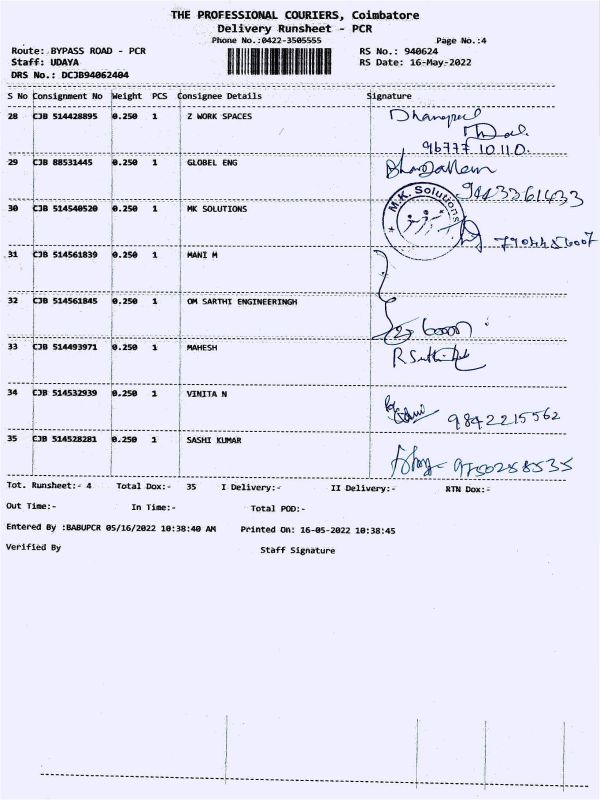 THE PROFESSIONAL COURIERS, Coimbatore
Delivery Runsheet - PCR
Phone No.:0422-3505555 Page No.:4
Route: BYPASS ROAD - PCR RS No.: 940624
Staff: UDAYA RS Date: 16-May-2022
DRS No.: DCJB94062404
S No Consignment No Weight PCS Consignee Details Signature
28 CJB 514428895 0.250 1 Z WORK SPACES Dhanapal
96777 10110.
29 CJB 88531445 0.250 1 GLOBEL ENG
9443361433
30 CJB 514540520 0.250 1 MK SOLUTIONS M.K. Solutions
31 CJB 514561839 0.250 1 MANI M
32 CJB 514561845 0.250 1 OM SARTHI ENGINEERINGH
33 CJB 514493971 0.250 1 MAHESH
34 CJB 514532939 0.250 1 VINITA N 9842215562
35 CJB 514528281 0.250 1 SASHI KUMAR 9750258535
Tot. Runsheet:- 4 Total Dox:- 35 I Delivery:- II Delivery:- RTN Dox:-
Out Time:- In Time:- Total POD:-
Entered By :BABUPCR 05/16/2022 10:38:40 AM Printed On: 16-05-2022 10:38:45
Verified By Staff Signature